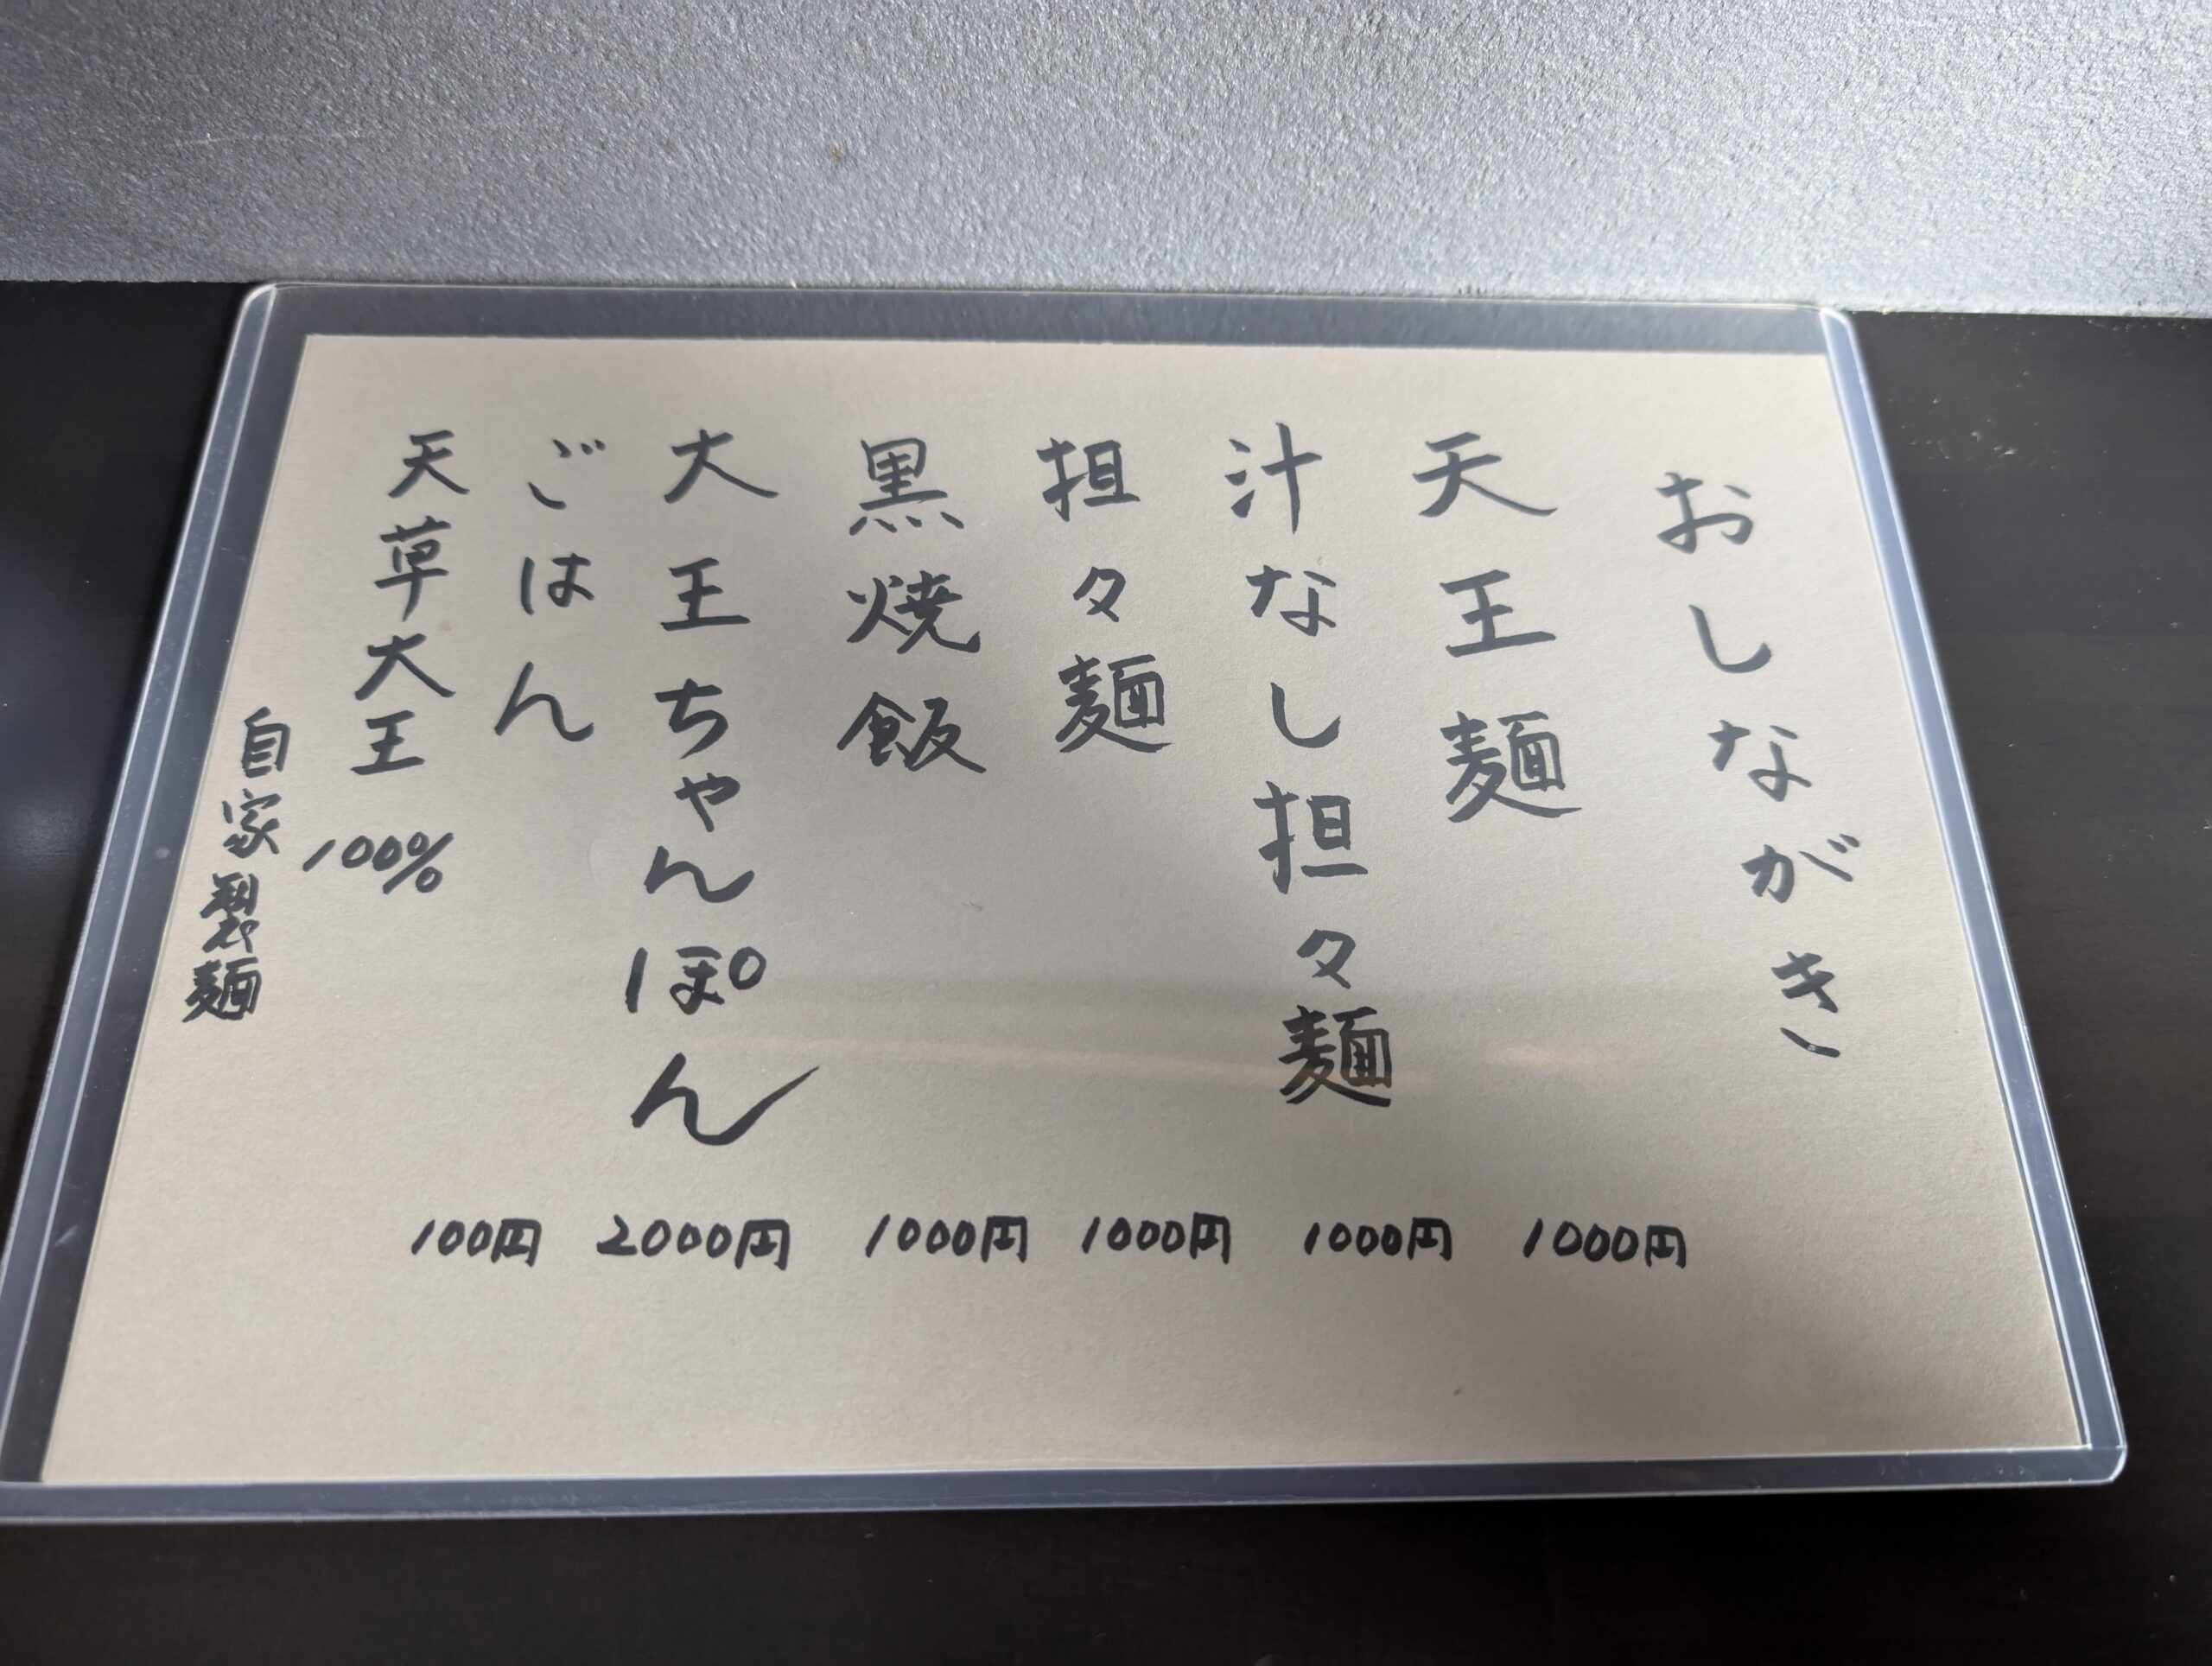 おしながき
天王麺 1000円
汁なし担々麺 1000円
担々麺 1000円
黒焼飯 1000円
大王ちゃんぽん 2000円
ごはん 100円
天草大王 100%
自家製麺